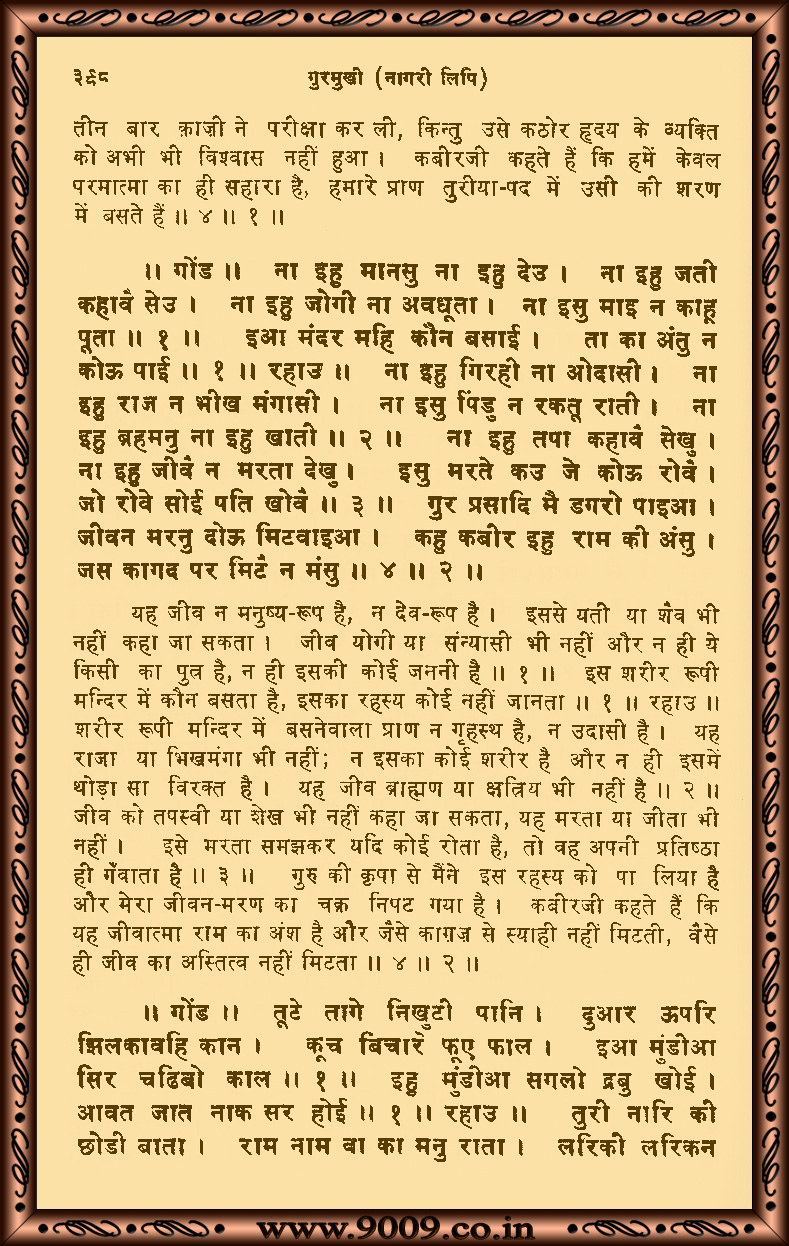 ३९८ गुरमुखी (नागरी लिपि)
तीन बार क़ाज़ी ने परीक्षा कर ली, किन्तु उसे कठोर हृदय के व्यक्ति
को अभी भी विश्वास नहीं हुआ । कबीरजी कहते हैं कि हमें केवल
परमात्मा का ही सहारा है, हमारे प्राण तुरीया-पद में उसी की शरण
में बसते हैं ॥ ४ ॥ १ ॥
॥ गोंड ॥ ना इहु मानसु ना इहु देउ । ना इहु जती
कहावै सेउ । ना इहु जोगी ना अवधूता । ना इसु माइ न काहू
पूता ॥ १ ॥ इआ मंदर महि कौन बसाई । ता का अंतु न
कोऊ पाई ॥ १ ॥ रहाउ ॥ ना इहु गिरही ना ओदासी । ना
इहु राज न भीख मंगासी । ना इसु पिंडु न रकतू राती । ना
इहु ब्रहमनु ना इहु खाती ॥ २ ॥ ना इहु तपा कहावै सेखु ।
ना इहु जीवै न मरता देखु । इसु मरते कउ जे कोऊ रोवै ।
जो रोवे सोई पति खोवै ॥ ३ ॥ गुर प्रसादि मै डगरो पाइआ ।
जीवन मरनु दोऊ मिटवाइआ । कहु कबीर इहु राम की अंसु ।
जस कागद पर मिटै न मंसु ॥ ४ ॥ २ ॥
यह जीव न मनुष्य-रूप है, न देव-रूप है । इससे यती या शैव भी
नहीं कहा जा सकता । जीव योगी या संन्यासी भी नहीं और न ही ये
किसी का पुत्र है, न ही इसकी कोई जननी है ॥ १ ॥ इस शरीर रूपी
मन्दिर में कौन बसता है, इसका रहस्य कोई नहीं जानता ॥ १ ॥ रहाउ ॥
शरीर रूपी मन्दिर में बसनेवाला प्राण न गृहस्थ है, न उदासी है । यह
राजा या भिखमंगा भी नहीं; न इसका कोई शरीर है और न ही इसमें
थोड़ा सा विरक्त है । यह जीव ब्राह्मण या क्षत्रिय भी नहीं है ॥ २ ॥
जीव को तपस्वी या शेख भी नहीं कहा जा सकता, यह मरता या जीता भी
नहीं । इसे मरता समझकर यदि कोई रोता है, तो वह अपनी प्रतिष्ठा
ही गँवाता है ॥ ३ ॥ गुरु की कृपा से मैंने इस रहस्य को पा लिया है
और मेरा जीवन-मरण का चक्र निपट गया है । कबीरजी कहते हैं कि
यह जीवात्मा राम का अंश है और जैसे काग़ज़ से स्याही नहीं मिटती, वैसे
ही जीव का अस्तित्व नहीं मिटता ॥ ४ ॥ २ ॥
॥ गोंड ॥ तूटे तागे निखुटी पानि । दुआर ऊपरि
झिलकावहि कान । कूच बिचारे फूए फाल । इआ मुंडीआ
सिर चढिबो काल ॥ १ ॥ इहु मुंडीआ सगलो द्रबु खोई ।
आवत जात नाक सर होई ॥ १ ॥ रहाउ ॥ तुरी नारि की
छोडी बाता । राम नाम वा का मनु राता । लरिकी लरिकन
www.9009.co.in